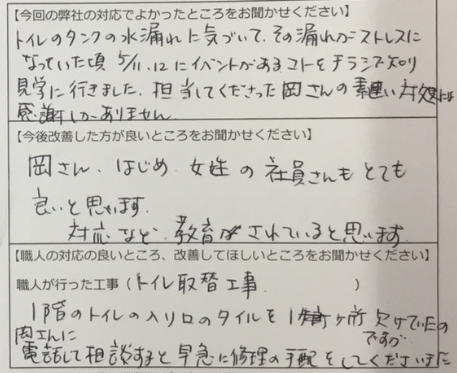 【今回の弊社の対応でよかったところをお聞かせください】
トイレのタンクの水漏れに気づいて、その漏れがストレスに
なっていた頃 5/11.12にイベントがあるコトをチラシで知り
見学に行きました。担当してくださった岡さんの素速い対処には
感謝しかありません
【今後改善した方が良いところをお聞かせください】
岡さん、はじめ 女性の社員さんもとても
良いと思います.
対応など、教育がされていると思います.
【職人の対応の良いところ、改善してほしいところをお聞かせください】
職人が行った工事（トイレ取替工事. ）
1階のトイレの入り口のタイルを1ヶ所 欠けていたの
ですが
岡さんに
電話して相談すると早急に修理の手配をしてくださいました